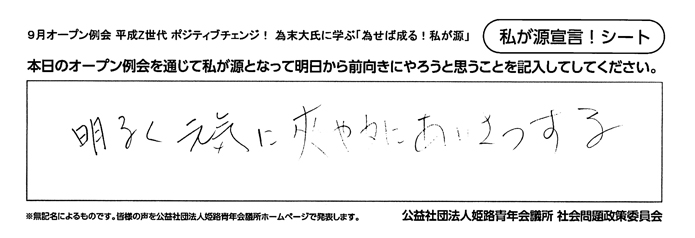 9月オープン例会 平成Z世代 ポジティブチェンジ! 為末大氏に学ぶ「為せば成る!私が源」
私が源宣言!シート
本日のオープン例会を通じて私が源となって明日から前向きにやろうと思うことを記入してしてください。
明るく元気に爽やかにあいさつする
※無記名によるものです。皆様の声を公益社団法人姫路青年会議所ホームページで発表します。
公益社団法人姫路青年会議所 社会問題政策委員会